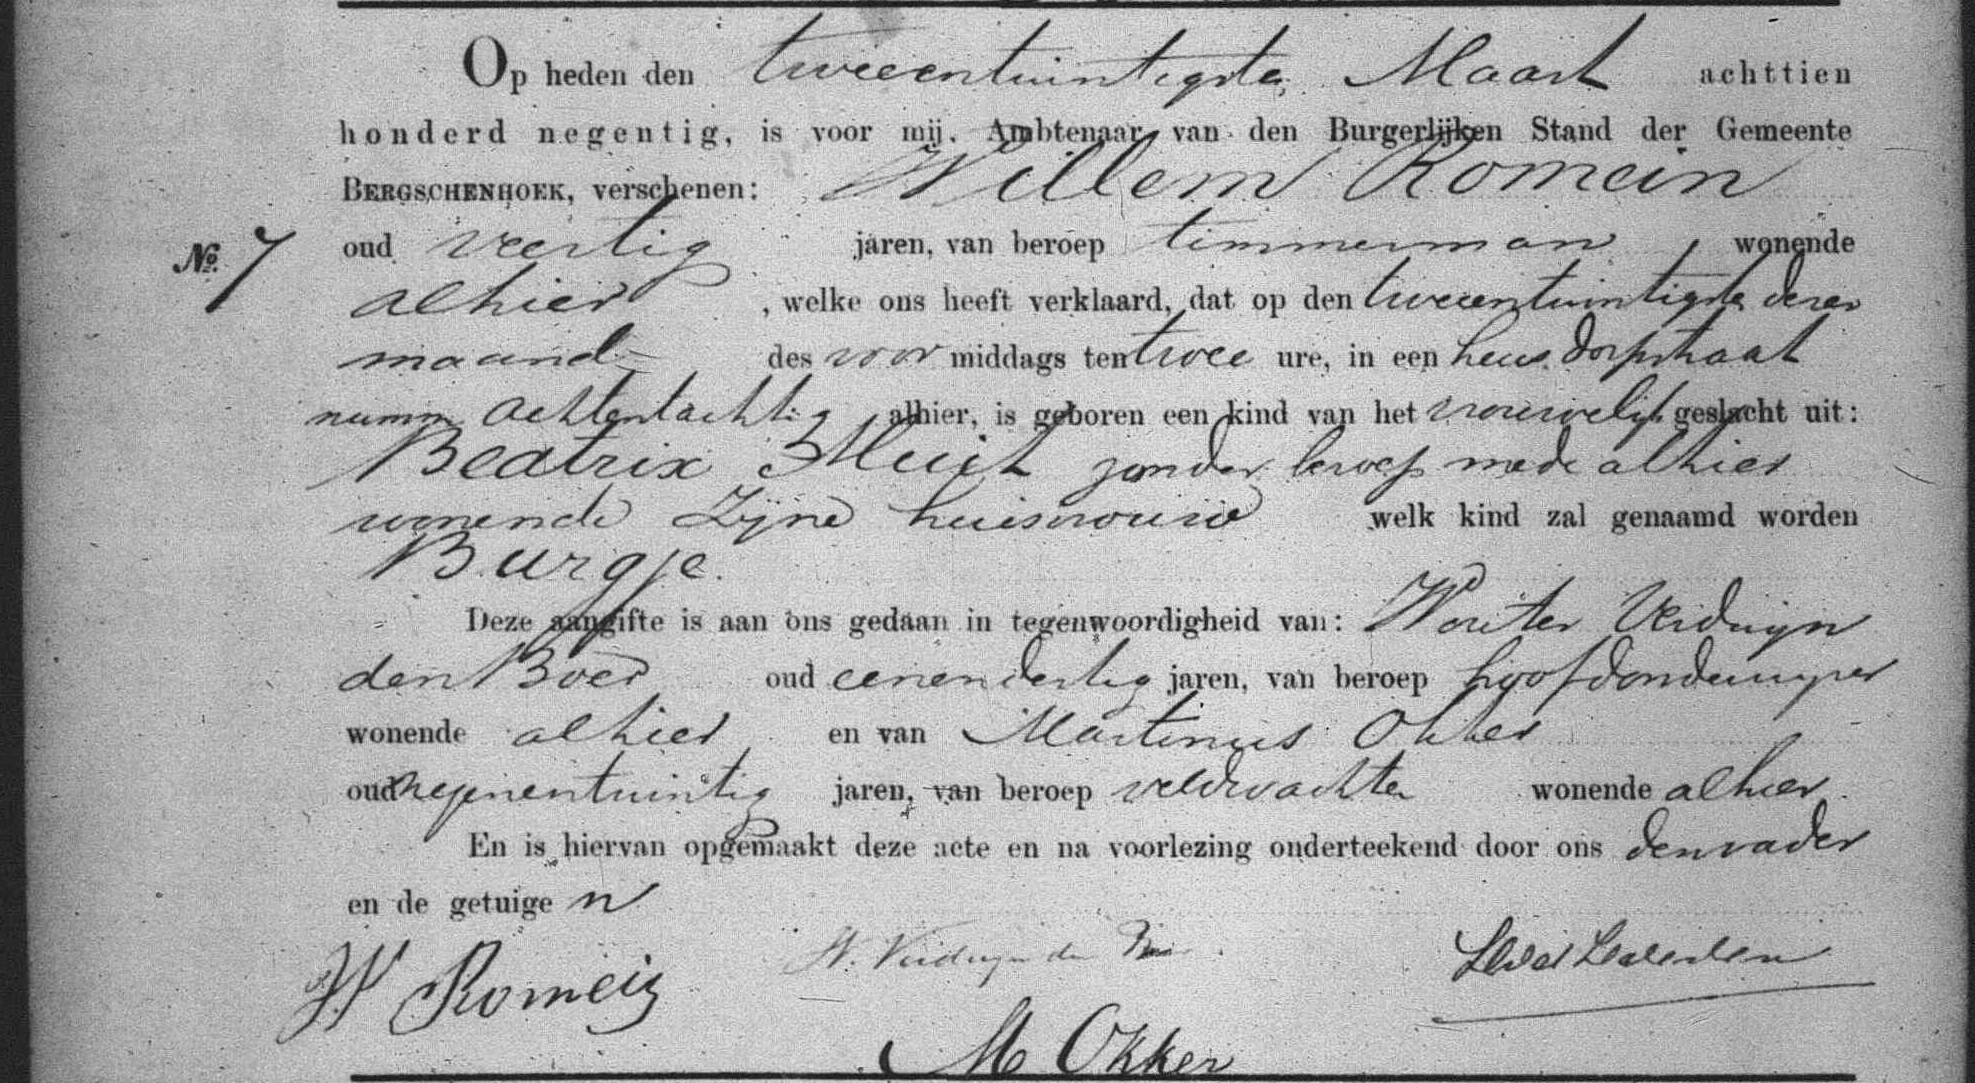 Op heden den tweeentwintigsten Maart achttien
honderd negentig, is voor mij, Ambtenaar van den Burgerlijken Stand der Gemeente
BERGSCHENHOEK, verschenen: Willem Romein
No. 7 oud veertig jaren, van beroep timmerman, wonende
alhier, welke ons heeft verklaard, dat op den tweeentwintigsten dezer
maand des voor middags ten twee ure, in een huis dorpstraat
numm achtentachtig alhier, is geboren een kind van het vrouwelijk geslacht uit:
Beatrix zonder beroep mede alhier
wonende zijne huisvrouw welk kind zal genaamd worden
Burgje.
Deze aangifte is aan ons gedaan in tegenwoordigheid van: Wouter Verduijn
den Boer oud eenendertig jaren, van beroep hoofdonderwijzer
wonende alhier en van Martinus Okker
oud negenentwintig jaren, van beroep veldwachter wonende alhier.
En is hiervan opgemaakt deze acte en na voorlezing onderteekend door ons den vader
en de getuige n
W Romein W. Verduijn den Boer
M Okker